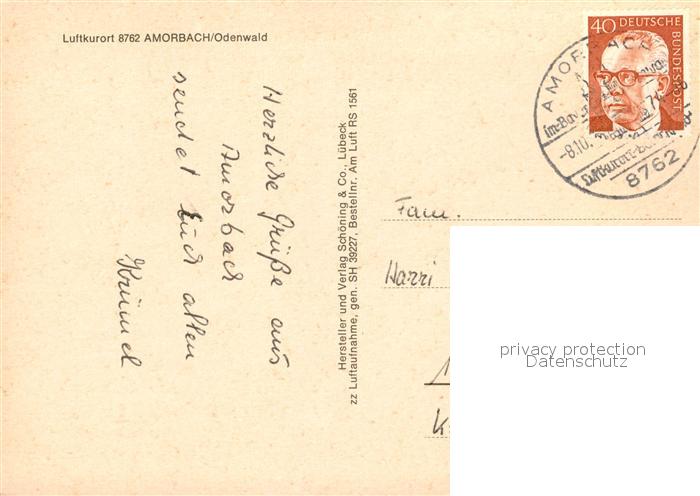 Luftkurort 8762 AMORBACH/Odenwald
Herzliche Grüße aus
Amorbach
sendet Euch allen
Krümel
Hersteller und Verlag Schöning & Co., Lübeck
zz Luftaufnahme, gen. SH 39227, Bestellnr. Am Luft RS 1561
40 DEUTSCHE
BUNDESPOST
AMORBACH
8.10.
Luftkurort
8762
Fam.
Harri
privacy protection
Datenschutz